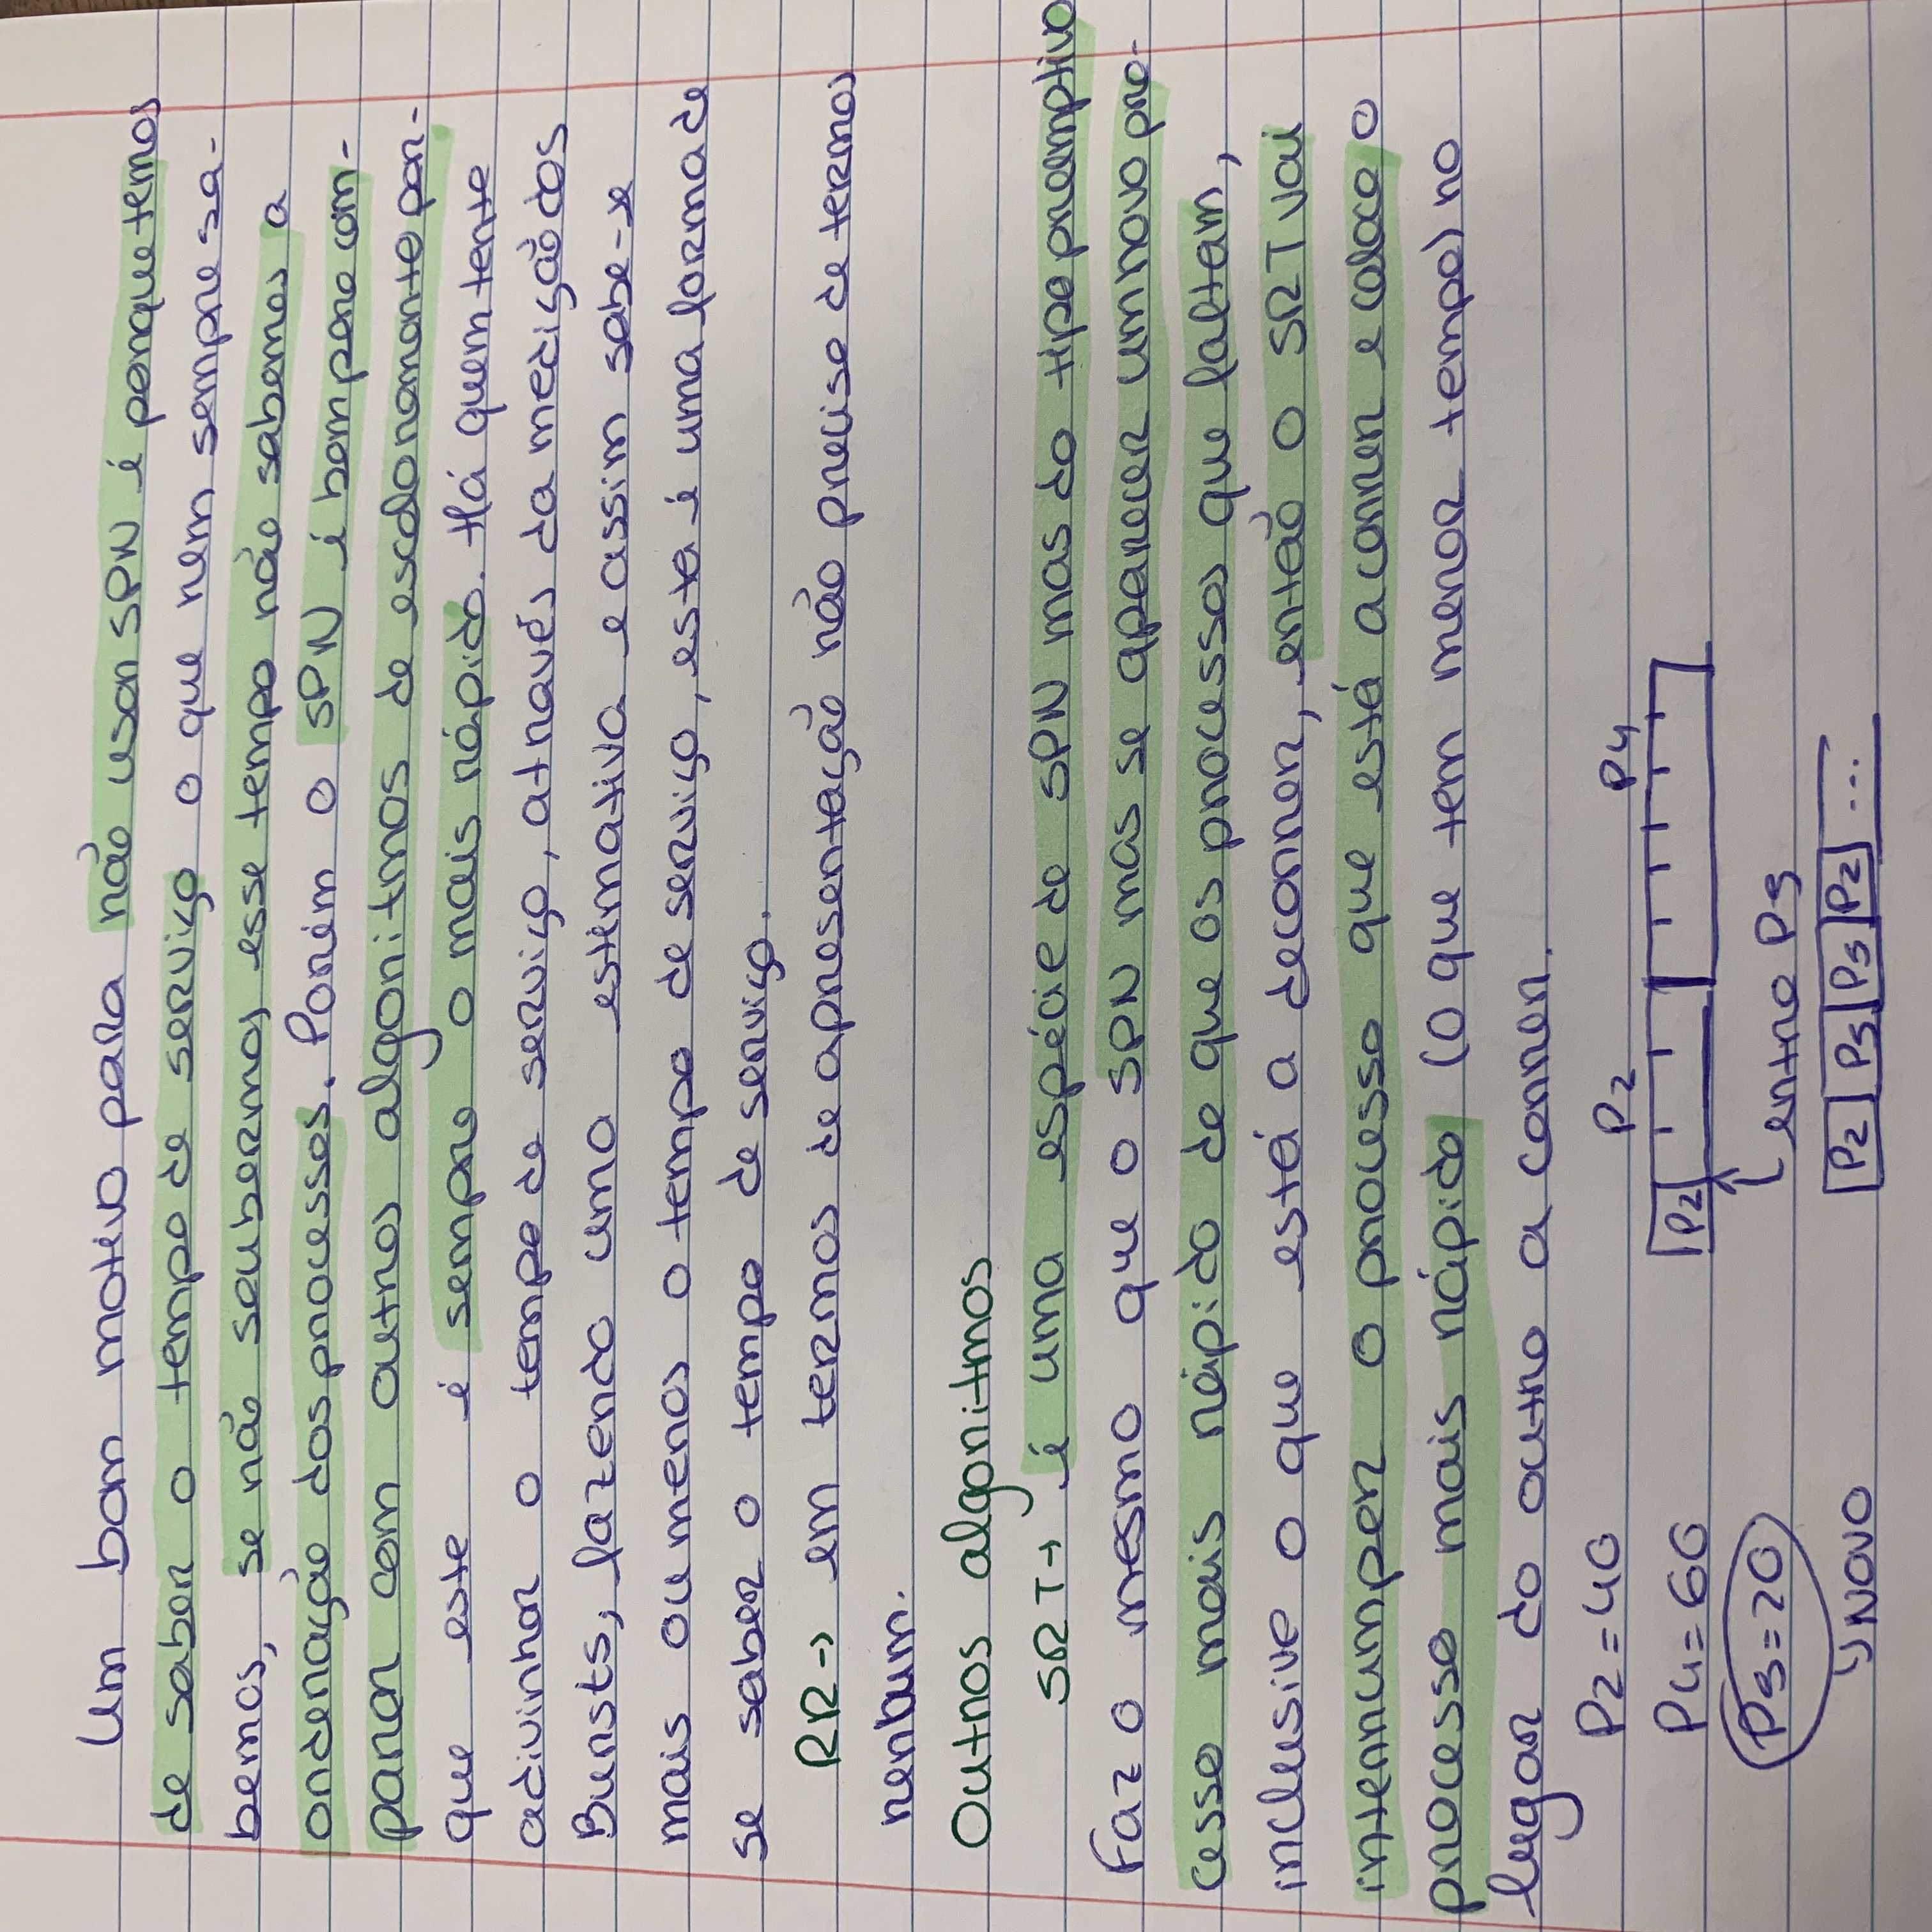 Um bom motivo para não usar SPN é porque temos
de saber o tempo de serviço o que nem sempre sa-
bemos, se não soubermos esse tempo não sabemos a
ordenação dos processos. Porém o SPN é bom para com-
parar com outros algoritmos de escalonamento por-
que este é sempre o mais rápido. Há quem tente
adivinhar o tempo de serviço, através da medição dos
Bursts, fazendo uma estimativa e assim sabe-se
mais ou menos o tempo de serviço, esta é uma forma de
se saber o tempo de serviço.
RR → em termos de apresentação não precisa de termos
nenhum.
Outros algoritmos
SRT → é uma espécie de SPN mas do tipo preemptivo
Faz o mesmo que o SPN mas se aparecer um novo pro-
cesso mais rápido do que os processos que faltam,
inclusive o que está a decorrer, então o SRT vai
interrumper o processo que está a correr e coloca o
processo mais rápido (o que tem menor tempo) no
lugar do outro a correr.
P2 = 40
P2 P4
P4 = 60
P2
P5 = 20
entra P5
↳ NOVO
P2 P5 P5 P2 ...